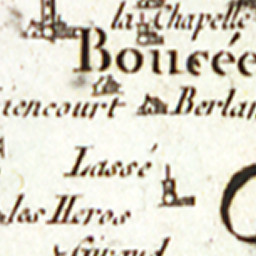 la Chapelle
Boucée
iencourt Berlan
Lassé
les Heros
Giraud